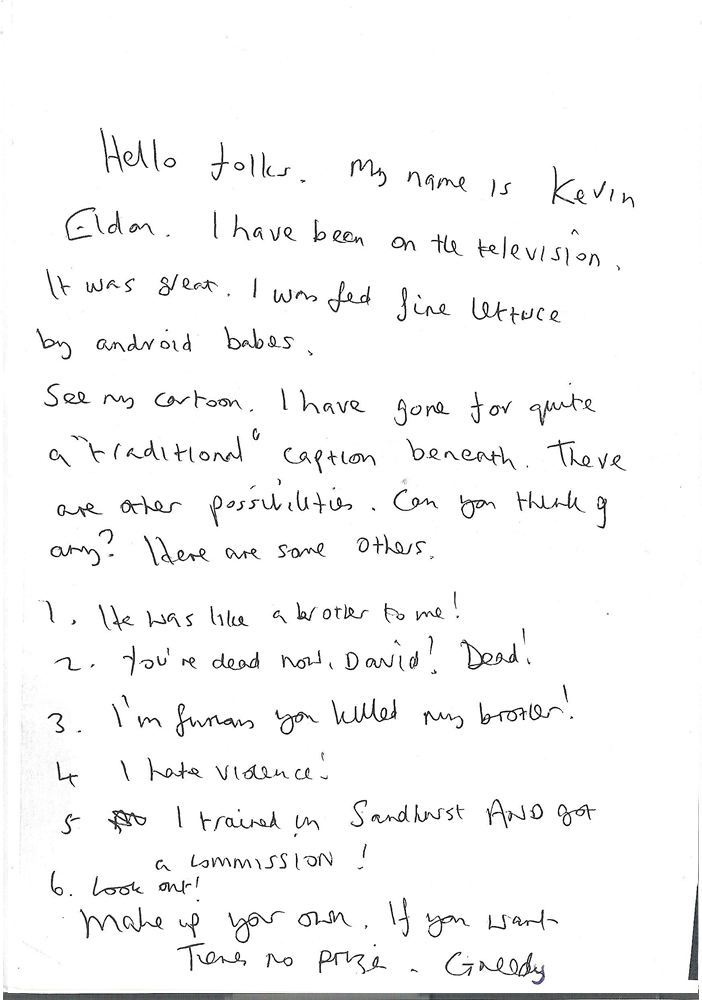 Hello folks. My name is Kevin
Eldon. I have been on the television.
It was great. I was fed fine lettuce
by android babes.
See my cartoon. I have gone for quite
a "traditional" caption beneath. There
are other possibilities. Can you think of
any? Here are some others.
1. He was like a brother to me!
2. You're dead now, David! Dead!
3. I'm furious you killed my brother!
4 I hate violence!
5 I trained in Sandhurst AND got
a commission!
6. Look out!
Make up your own. If you want
Theres no prize. Greedy